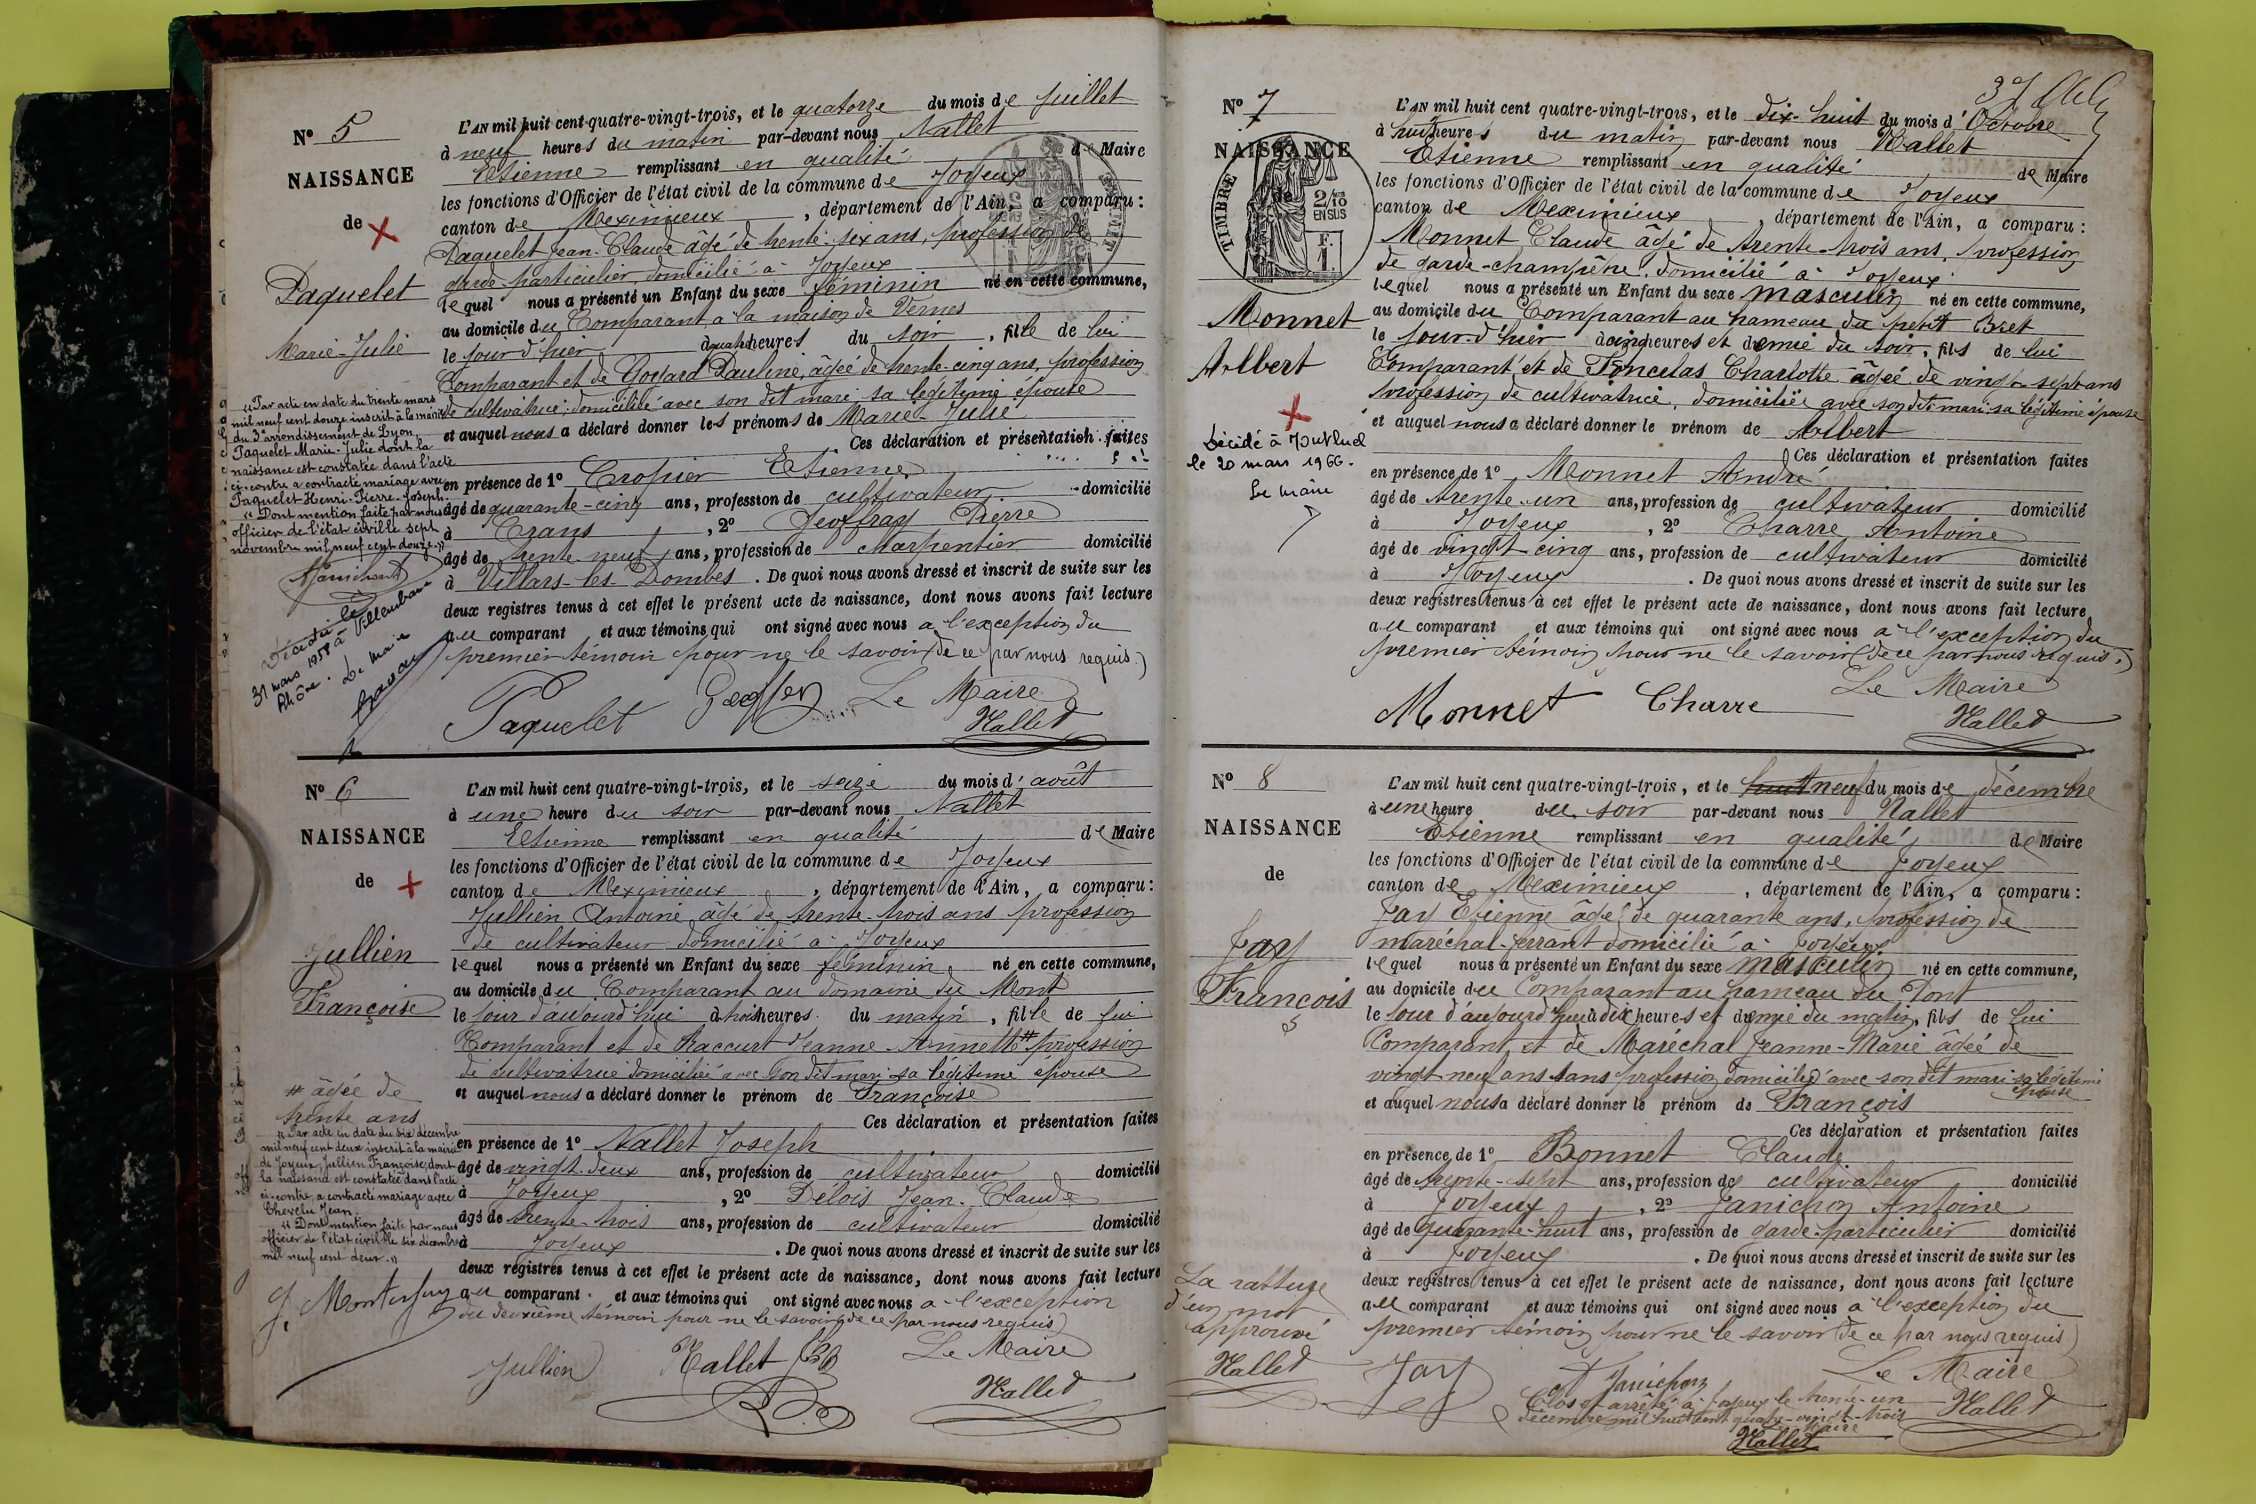 N° 5
NAISSANCE
de
Paquelet
Marie-Julie
L'AN mil huit cent quatre-vingt-trois, et le quatorze du mois de Juillet
à neuf heures du matin par-devant nous Nallet
Etienne remplissant en qualité de Maire
les fonctions d'Officier de l'état civil de la commune de Joyeux
canton de Meximieux, département de l'Ain, a comparu:
Paquelet Jean-Claude âgé de trente-six ans, profession de
garde particulier, domicilié à Joyeux
lequel nous a présenté un Enfant du sexe féminin né en cette commune,
au domicile du Comparant, à la maison de Vernes
le jour d'hier à quatre heures du soir, fille de lui
Comparant et de Goyard Pauline, âgée de trente-cinq ans, profession
de cultivatrice, domiciliée avec son dit mari, sa légitime épouse
et auquel nous a déclaré donner les prénoms de Marie-Julie
Ces déclaration et présentation faites
en présence de 1° Cropier Etienne
âgé de quarante-cinq ans, profession de cultivateur domicilié
à Crans, 2° Jeoffray Pierre
âgé de trente neuf ans, profession de charpentier domicilié
à Villars-les Dombes. De quoi nous avons dressé et inscrit de suite sur les
deux registres tenus à cet effet le présent acte de naissance, dont nous avons fait lecture
au comparant et aux témoins qui ont signé avec nous à l'exception du
premier témoin pour ne le savoir (de ce par nous requis)
Paquelet Le Maire
Nallet
"Par acte en date du trente mars
mil neuf cent douze inscrit à la mairie
du 3e arrondissement de Lyon,
Paquelet Marie-Julie dont la
naissance est constatée dans l'acte
ci-contre a contracté mariage avec
Paquelet Henri-Pierre-Joseph.
"Dont mention faite par nous
officier de l'état civil le sept
novembre mil neuf cent douze."
Décédée le
31 mars 1958 à Villeurbanne
Rhône. Le Maire
N° 6
NAISSANCE
de
Jullien
Françoise
L'AN mil huit cent quatre-vingt-trois, et le seize du mois d'août
à une heure du soir par-devant nous Nallet
Etienne remplissant en qualité de Maire
les fonctions d'Officier de l'état civil de la commune de Joyeux
canton de Meximieux, département de l'Ain, a comparu:
Jullien Antoine, âgé de trente-trois ans profession
de cultivateur domicilié à Joyeux
lequel nous a présenté un Enfant du sexe féminin, né en cette commune,
au domicile du Comparant au domaine du Mont
le jour d'aujourd'hui à trois heures du matin, fille de lui
Comparant et de Raccurt Jeanne-Annette # profession
de cultivatrice domiciliée avec son dit mari sa légitime épouse
et auquel nous a déclaré donner le prénom de Françoise
Ces déclaration et présentation faites
en présence de 1° Nallet Joseph
âgé de vingt-deux ans, profession de cultivateur domicilié
à Joyeux, 2° Délois Jean-Claude
âgé de trente-trois ans, profession de cultivateur domicilié
à Joyeux. De quoi nous avons dressé et inscrit de suite sur les
deux registres tenus à cet effet le présent acte de naissance, dont nous avons fait lecture
au comparant et aux témoins qui ont signé avec nous à l'exception
du deuxième témoin pour ne le savoir (de ce par nous requis)
Jullien Nallet Le Maire
Nallet
# âgée de
trente ans
"Par acte en date du six décembre
mil neuf cent deux inscrit à la mairie
de Joyeux, Jullien Françoise, dont
la naissance est constatée dans l'acte
ci-contre, a contracté mariage avec
Chevelu Jean.
"Dont mention faite par nous
officier de l'état civil le six décembre
mil neuf cent deux."
N° 7
NAISSANCE
TIMBRE
2/10
EN SUS
F.
1.
Monnet
Albert
Décédé à
le 20 mars 1966.
Le Maire
L'AN mil huit cent quatre-vingt-trois, et le dix-huit du mois d'Octobre
à huit heures du matin par-devant nous Nallet
Etienne remplissant en qualité de Maire
les fonctions d'Officier de l'état civil de la commune de Joyeux
canton de Meximieux, département de l'Ain, a comparu:
Monnet Claude âgé de trente-trois ans, profession
de garde-champêtre, domicilié à Joyeux
lequel nous a présenté un Enfant du sexe masculin né en cette commune,
au domicile du Comparant au hameau du petit Bret
le jour-d'hier à cinq heures et demie du soir, fils de lui
Comparant et de Foncelas Charlotte âgée de vingt-sept ans
profession de cultivatrice, domiciliée avec son dit mari sa légitime épouse
et auquel nous a déclaré donner le prénom de Albert
Ces déclaration et présentation faites
en présence de 1° Monnet André
âgé de trente-un ans, profession de cultivateur domicilié
à Joyeux, 2° Charre Antoine
âgé de vingt-cinq ans, profession de cultivateur domicilié
à Joyeux. De quoi nous avons dressé et inscrit de suite sur les
deux registres tenus à cet effet le présent acte de naissance, dont nous avons fait lecture
au comparant et aux témoins qui ont signé avec nous à l'exception du
premier témoin pour ne le savoir (de ce par nous requis.)
Le Maire
Monnet Charre Nallet
N° 8
NAISSANCE
de
Jay
François
L'AN mil huit cent quatre-vingt-trois, et le huit neuf du mois de décembre
à une heure du soir par-devant nous Nallet
Etienne remplissant en qualité de Maire
les fonctions d'Officier de l'état civil de la commune de Joyeux
canton de Meximieux, département de l'Ain, a comparu:
Jay Etienne âgé de quarante ans, profession de
maréchal-ferrant domicilié à Joyeux
lequel nous a présenté un Enfant du sexe masculin né en cette commune,
au domicile du Comparant au hameau du Pont
le jour d'aujourd'hui à dix heures et demie du matin, fils de lui
Comparant et de Maréchal Jeanne-Marie âgée de
vingt-neuf ans sans profession domiciliée avec son dit mari sa légitime
épouse
et auquel nous a déclaré donner le prénom de François
Ces déclaration et présentation faites
en présence de 1° Bonnet Claude
âgé de trente-sept ans, profession de cultivateur domicilié
à Joyeux, 2° Janichon Antoine
âgé de quarante-huit ans, profession de garde-particulier domicilié
à Joyeux. De quoi nous avons dressé et inscrit de suite sur les
deux registres tenus à cet effet le présent acte de naissance, dont nous avons fait lecture
au comparant et aux témoins qui ont signé avec nous à l'exception du
premier témoin pour ne le savoir (de ce par nous requis)
Jay Janichon Le Maire
Nallet
La rature
d'un mot
approuvé
Nallet
Clos et arrêté à Joyeux le trente-un
décembre mil huit cent quatre-vingt-trois
Le Maire
Nallet